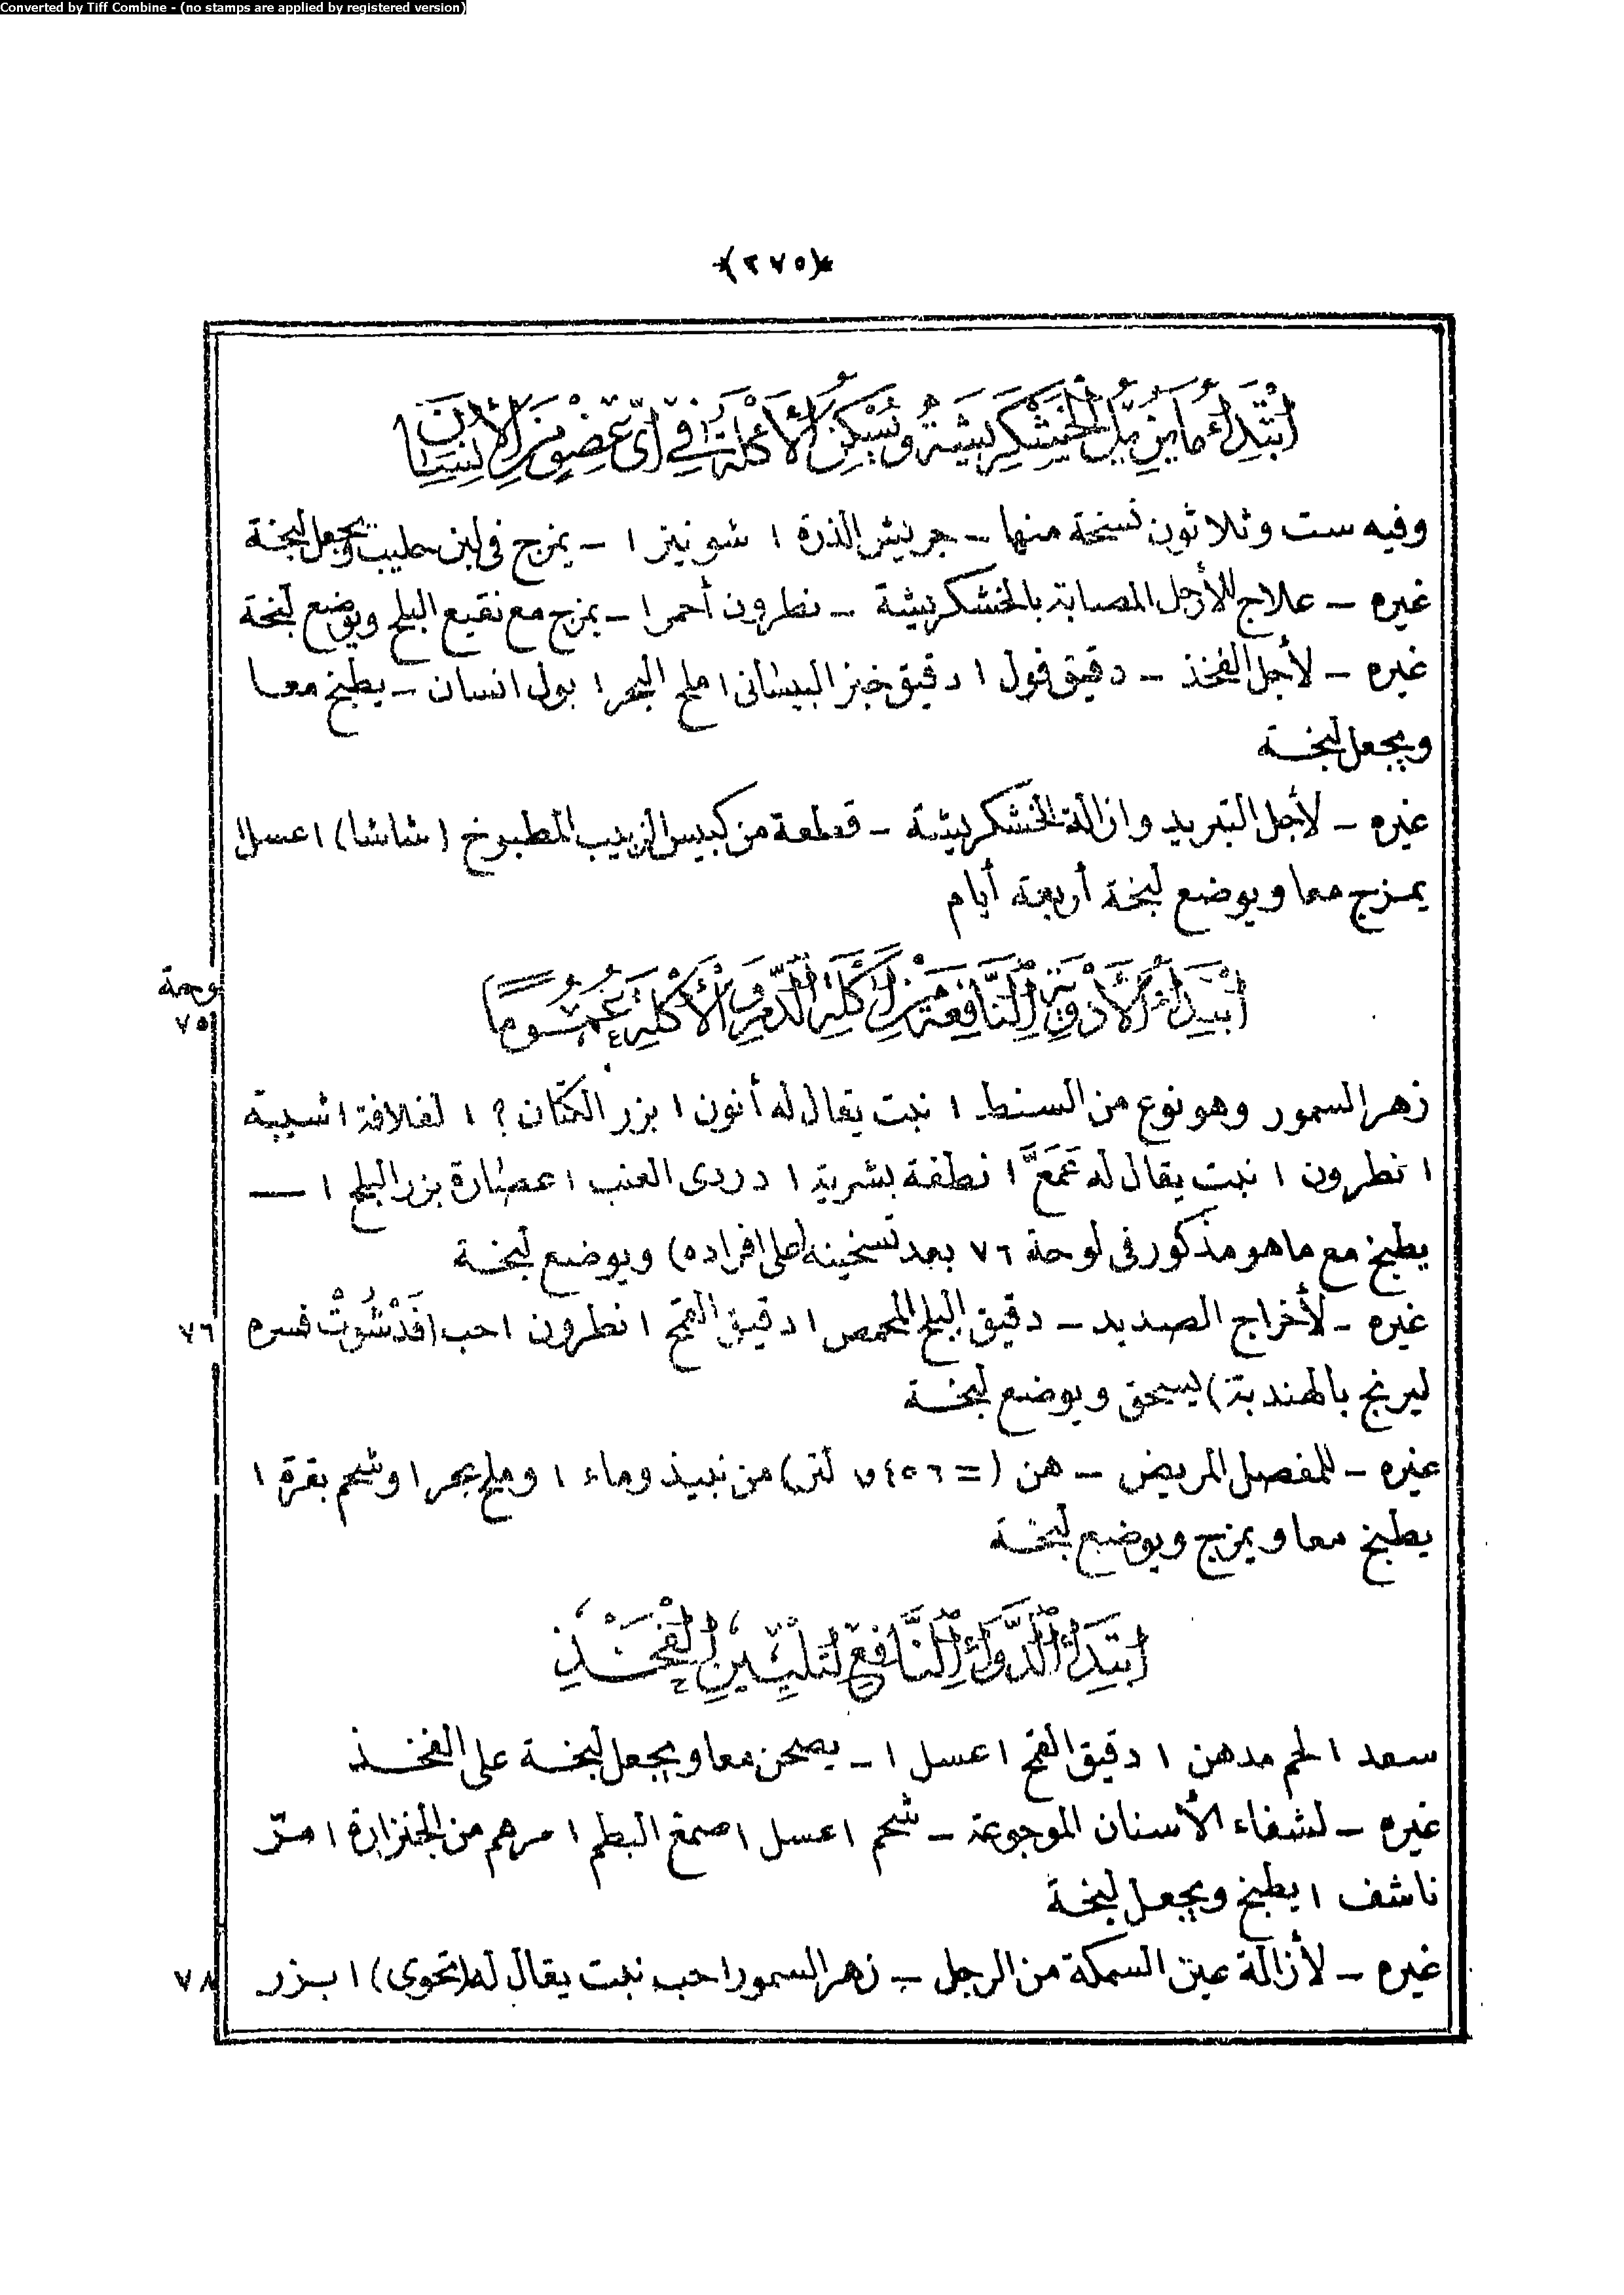 Converted by Tiff Combine - (no stamps are applied by registered version)
*(٢٧٥)*
ابْتِدَاءُ مَا يُزِيلُ الْخَشْكَرِيشَةَ وَيُسَكِّنُ الْأَكْلَةَ فِي أَيِّ عُضْوٍ مِنَ الْإِنْسَانِ
وفيه ست وثلاثون نسخة منها – جريش الذرة ١ شونيز ١ – يمزج فى لبن حليب ويجعل لبخة
غيره – علاج للأرجل المصابة بالخشكريشة – نطرون أحمر ١ – يمزج مع نقيع البلح ويوضع لبخة
غيره – لأجل الفخذ – دقيق فول ١ دقيق خبز البيتانى ١ ملح البحر ١ بول انسان – يطبخ معا
ويجعل لبخة
غيره – لأجل التبريد وازالة الخشكريشة – قطعة من كبيس الزبيب المطبوخ (شاشا) ١ عسل ١
يمزج معا ويوضع لبخة أربعة أيام
ابْتِدَاءُ الْأَدْوِيَةِ النَّافِعَةِ مِنْ أَكْلَةِ الدَّمِ وَالْأَكْلَةِ عُمُومًا
لوحة
٧٥
زهر السمور وهو نوع من السنط ١ نبت يقال له أنون ١ بزر الكتان ؟ ١ لفلافة ١ شبية
١ نطرون ١ نبت يقال له عَمَعَّ ١ نطفة بشرية ١ دردى العنب ١ عصارة بزر البلح ١ —
يطبخ مع ما هو مذكور فى لوحة ٧٦ بعد تسخينه (على افراده) ويوضع لبخة
غيره – لأخراج الصديد – دقيق البلح المحمص ١ دقيق القمح ١ نطرون ١ حب (فَدْشُوتْ فسره
٧٦
ليرنج بالهندبة) يسحق ويوضع لبخة
غيره – للمفصل المريض – هن (= ٤٥٦ر٠ لتر) من نبيذ وماء ١ وملح بحر ١ وشحم بقرة ١
يطبخ معا ويمزج ويوضع لبخة
ابْتِدَاءُ الدَّوَاءِ النَّافِعِ لِتَلْيِينِ الْفَخِذِ
سعد ١ لحم مدهن ١ دقيق القمح ١ عسل ١ – يصحن معا ويجعل لبخة على الفخذ
غيره – لشفاء الأسنان الموجوعة – شحم ١ عسل ١ صمغ البطم ١ مرهم من الجنزارة ١ مرّ
ناشف ١ يطبخ ويجعل لبخة
غيره – لأزالة عين السمكة من الرجل – زهر السمور ١ حب نبت يقال له (تحوى) ١ بزر
٧٨